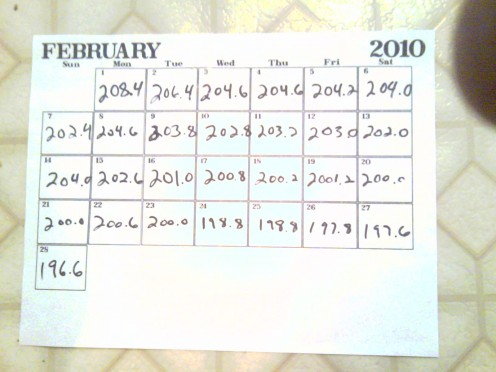 FEBRUARY 2010
Sun Mon Tue Wed Thu Fri Sat
1 2 3 4 5 6
208.4 206.4 204.6 204.6 204.2 204.0
7 8 9 10 11 12 13
202.4 204.6 203.8 202.8 203.2 203.0 202.0
14 15 16 17 18 19 20
204.0 202.6 201.0 200.8 200.2 2001.2 200.0
21 22 23 24 25 26 27
200.0 200.6 200.0 198.8 198.8 197.8 197.6
28
196.6